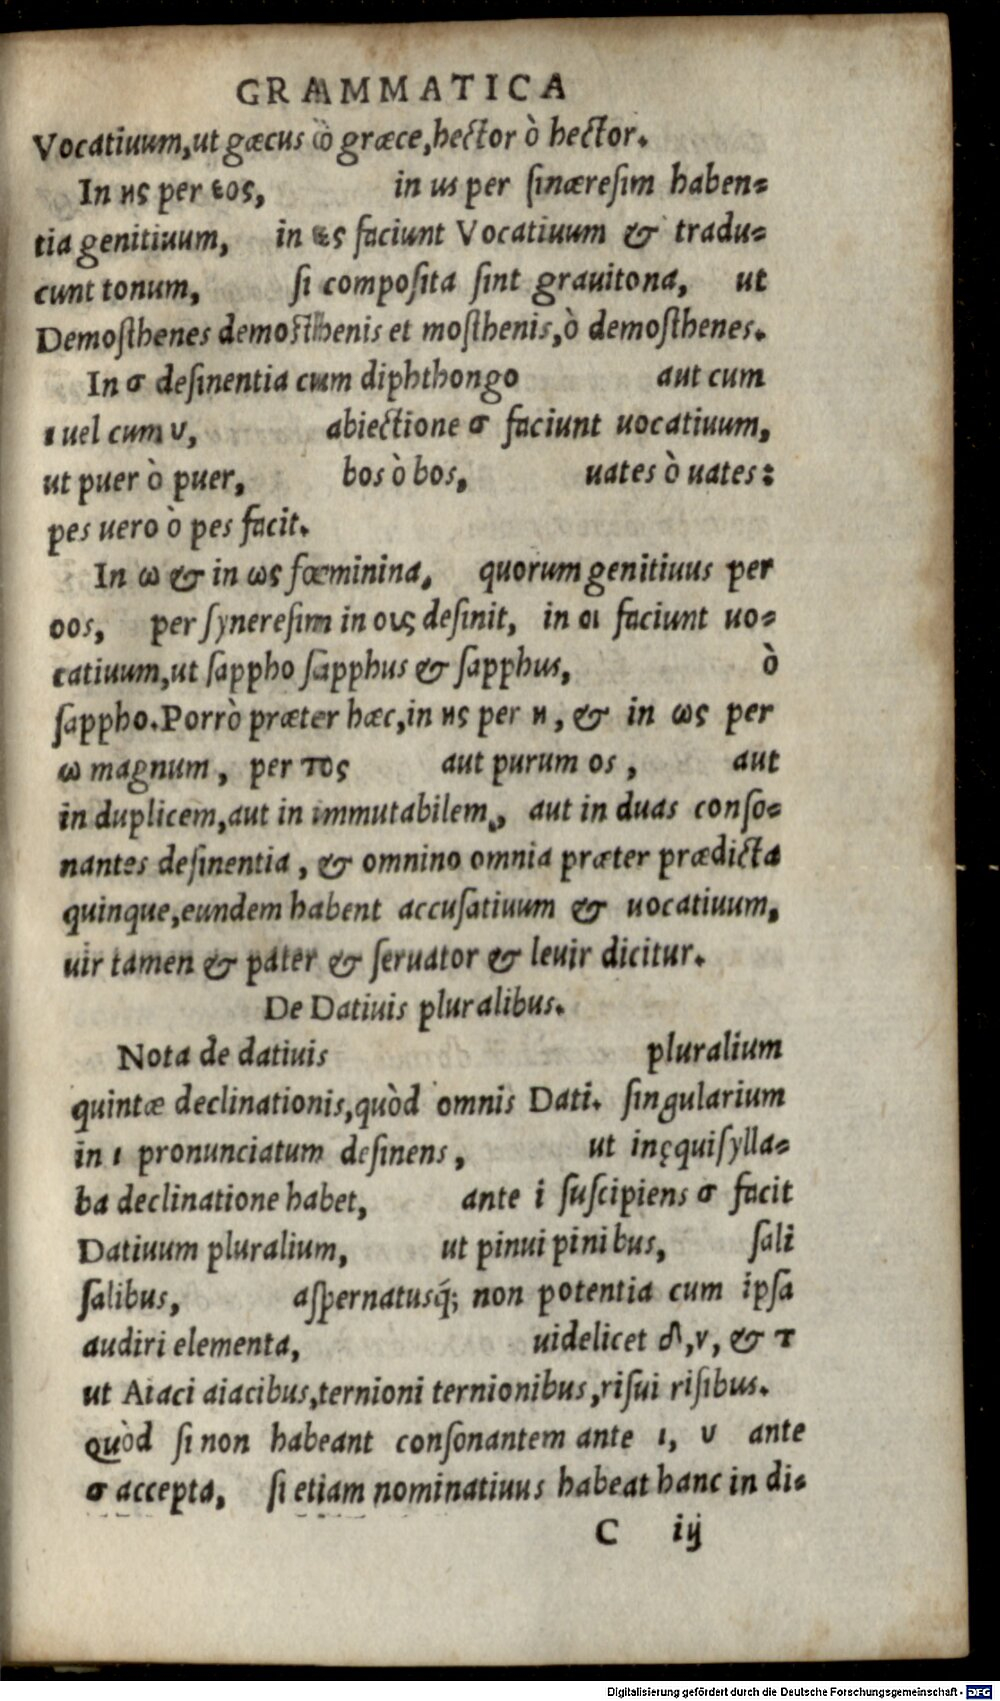 GRAMMATICA
Vocatiuum,ut gæcus ὦ græce,hector ò hector.
In ης per εος, in us per sinæresim haben=
tia genitiuum, in ες faciunt Vocatiuum & tradu=
cunt tonum, si composita sint grauitona, ut
Demosthenes demosthenis et mosthenis,ò demosthenes.
In σ desinentia cum diphthongo aut cum
ι uel cum υ, abiectione σ faciunt uocatiuum,
ut puer ò puer, bos ò bos, uates ò uates:
pes uero ò pes facit.
In ω & in ως fœminina, quorum genitiuus per
oos, per syneresim in ους desinit, in οι faciunt uo=
catiuum,ut sappho sapphus & sapphus, ò
sappho.Porrò præter hæc,in ης per η, & in ως per
ω magnum, per τος aut purum os, aut
in duplicem,aut in immutabilem, aut in duas conso=
nantes desinentia, & omnino omnia præter prædicta
quinque,eundem habent accusatiuum & uocatiuum,
uir tamen & pater & seruator & leuir dicitur.
De Datiuis pluralibus.
Nota de datiuis pluralium
quintæ declinationis,quòd omnis Dati. singularium
in ι pronunciatum desinens, ut inęquisylla=
ba declinatione habet, ante i suscipiens σ facit
Datiuum pluralium, ut pinui pinibus, sali
salibus, aspernatusq́; non potentia cum ipsa
audiri elementa, uidelicet δ,ν, & τ
ut Aiaci aiacibus,ternioni ternionibus,risui risibus.
quòd si non habeant consonantem ante ι, υ ante
σ accepta, si etiam nominatiuus habeat hanc in di=
C iij
Digitalisierung gefördert durch die Deutsche Forschungsgemeinschaft - DFG